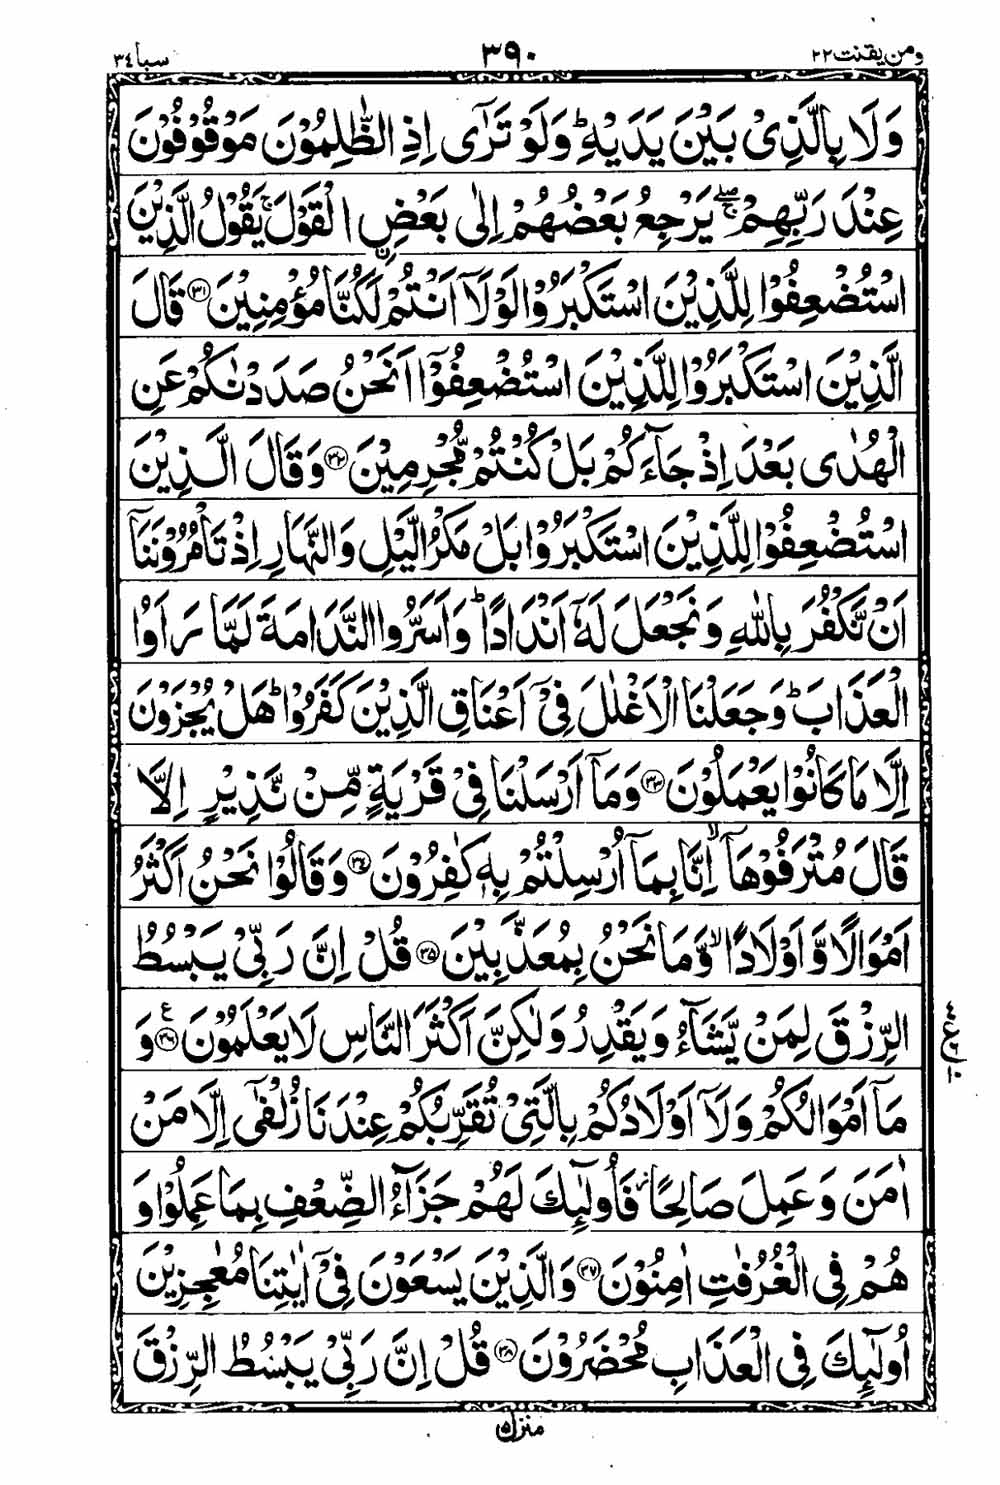 ومن یقنت ٢٢ ٣٩٠ سبا ٣٤
وَلَا بِالَّذِیْ بَیْنَ یَدَیْهِ ؕ وَلَوْ تَرٰۤی اِذِ الظّٰلِمُوْنَ مَوْقُوْفُوْنَ
عِنْدَ رَبِّهِمْ ۖۚ یَرْجِعُ بَعْضُهُمْ اِلٰی بَعْضِ ࣙالْقَوْلَ ۚ یَقُوْلُ الَّذِیْنَ
اسْتُضْعِفُوْا لِلَّذِیْنَ اسْتَكْبَرُوْا لَوْلَاۤ اَنْتُمْ لَكُنَّا مُؤْمِنِیْنَ ﴿٣١﴾ قَالَ
الَّذِیْنَ اسْتَكْبَرُوْا لِلَّذِیْنَ اسْتُضْعِفُوْۤا اَنَحْنُ صَدَدْنٰكُمْ عَنِ
الْهُدٰی بَعْدَ اِذْ جَآءَكُمْ بَلْ كُنْتُمْ مُّجْرِمِیْنَ ﴿٣٢﴾ وَقَالَ الَّذِیْنَ
اسْتُضْعِفُوْا لِلَّذِیْنَ اسْتَكْبَرُوْا بَلْ مَكْرُ الَّیْلِ وَالنَّهَارِ اِذْ تَاْمُرُوْنَنَاۤ
اَنْ نَّكْفُرَ بِاللّٰهِ وَنَجْعَلَ لَهٗۤ اَنْدَادًا ؕ وَاَسَرُّوا النَّدَامَةَ لَمَّا رَاَوُا
الْعَذَابَ ؕ وَجَعَلْنَا الْاَغْلٰلَ فِیْۤ اَعْنَاقِ الَّذِیْنَ كَفَرُوْا ؕ هَلْ یُجْزَوْنَ
اِلَّا مَا كَانُوْا یَعْمَلُوْنَ ﴿٣٣﴾ وَمَاۤ اَرْسَلْنَا فِیْ قَرْیَةٍ مِّنْ نَّذِیْرٍ اِلَّا
قَالَ مُتْرَفُوْهَاۤ ۙ اِنَّا بِمَاۤ اُرْسِلْتُمْ بِهٖ كٰفِرُوْنَ ﴿٣٤﴾ وَقَالُوْا نَحْنُ اَكْثَرُ
اَمْوَالًا وَّاَوْلَادًا ۙ وَّمَا نَحْنُ بِمُعَذَّبِیْنَ ﴿٣٥﴾ قُلْ اِنَّ رَبِّیْ یَبْسُطُ
الرِّزْقَ لِمَنْ یَّشَآءُ وَیَقْدِرُ وَلٰكِنَّ اَكْثَرَ النَّاسِ لَا یَعْلَمُوْنَ ﴿٣٦﴾ ع وَ
مَاۤ اَمْوَالُكُمْ وَلَاۤ اَوْلَادُكُمْ بِالَّتِیْ تُقَرِّبُكُمْ عِنْدَنَا زُلْفٰۤی اِلَّا مَنْ
اٰمَنَ وَعَمِلَ صَالِحًا ؗ فَاُولٰٓىِٕكَ لَهُمْ جَزَآءُ الضِّعْفِ بِمَا عَمِلُوْا وَ
هُمْ فِی الْغُرُفٰتِ اٰمِنُوْنَ ﴿٣٧﴾ وَالَّذِیْنَ یَسْعَوْنَ فِیْۤ اٰیٰتِنَا مُعٰجِزِیْنَ
اُولٰٓىِٕكَ فِی الْعَذَابِ مُحْضَرُوْنَ ﴿٣٨﴾ قُلْ اِنَّ رَبِّیْ یَبْسُطُ الرِّزْقَ
منزل ٥